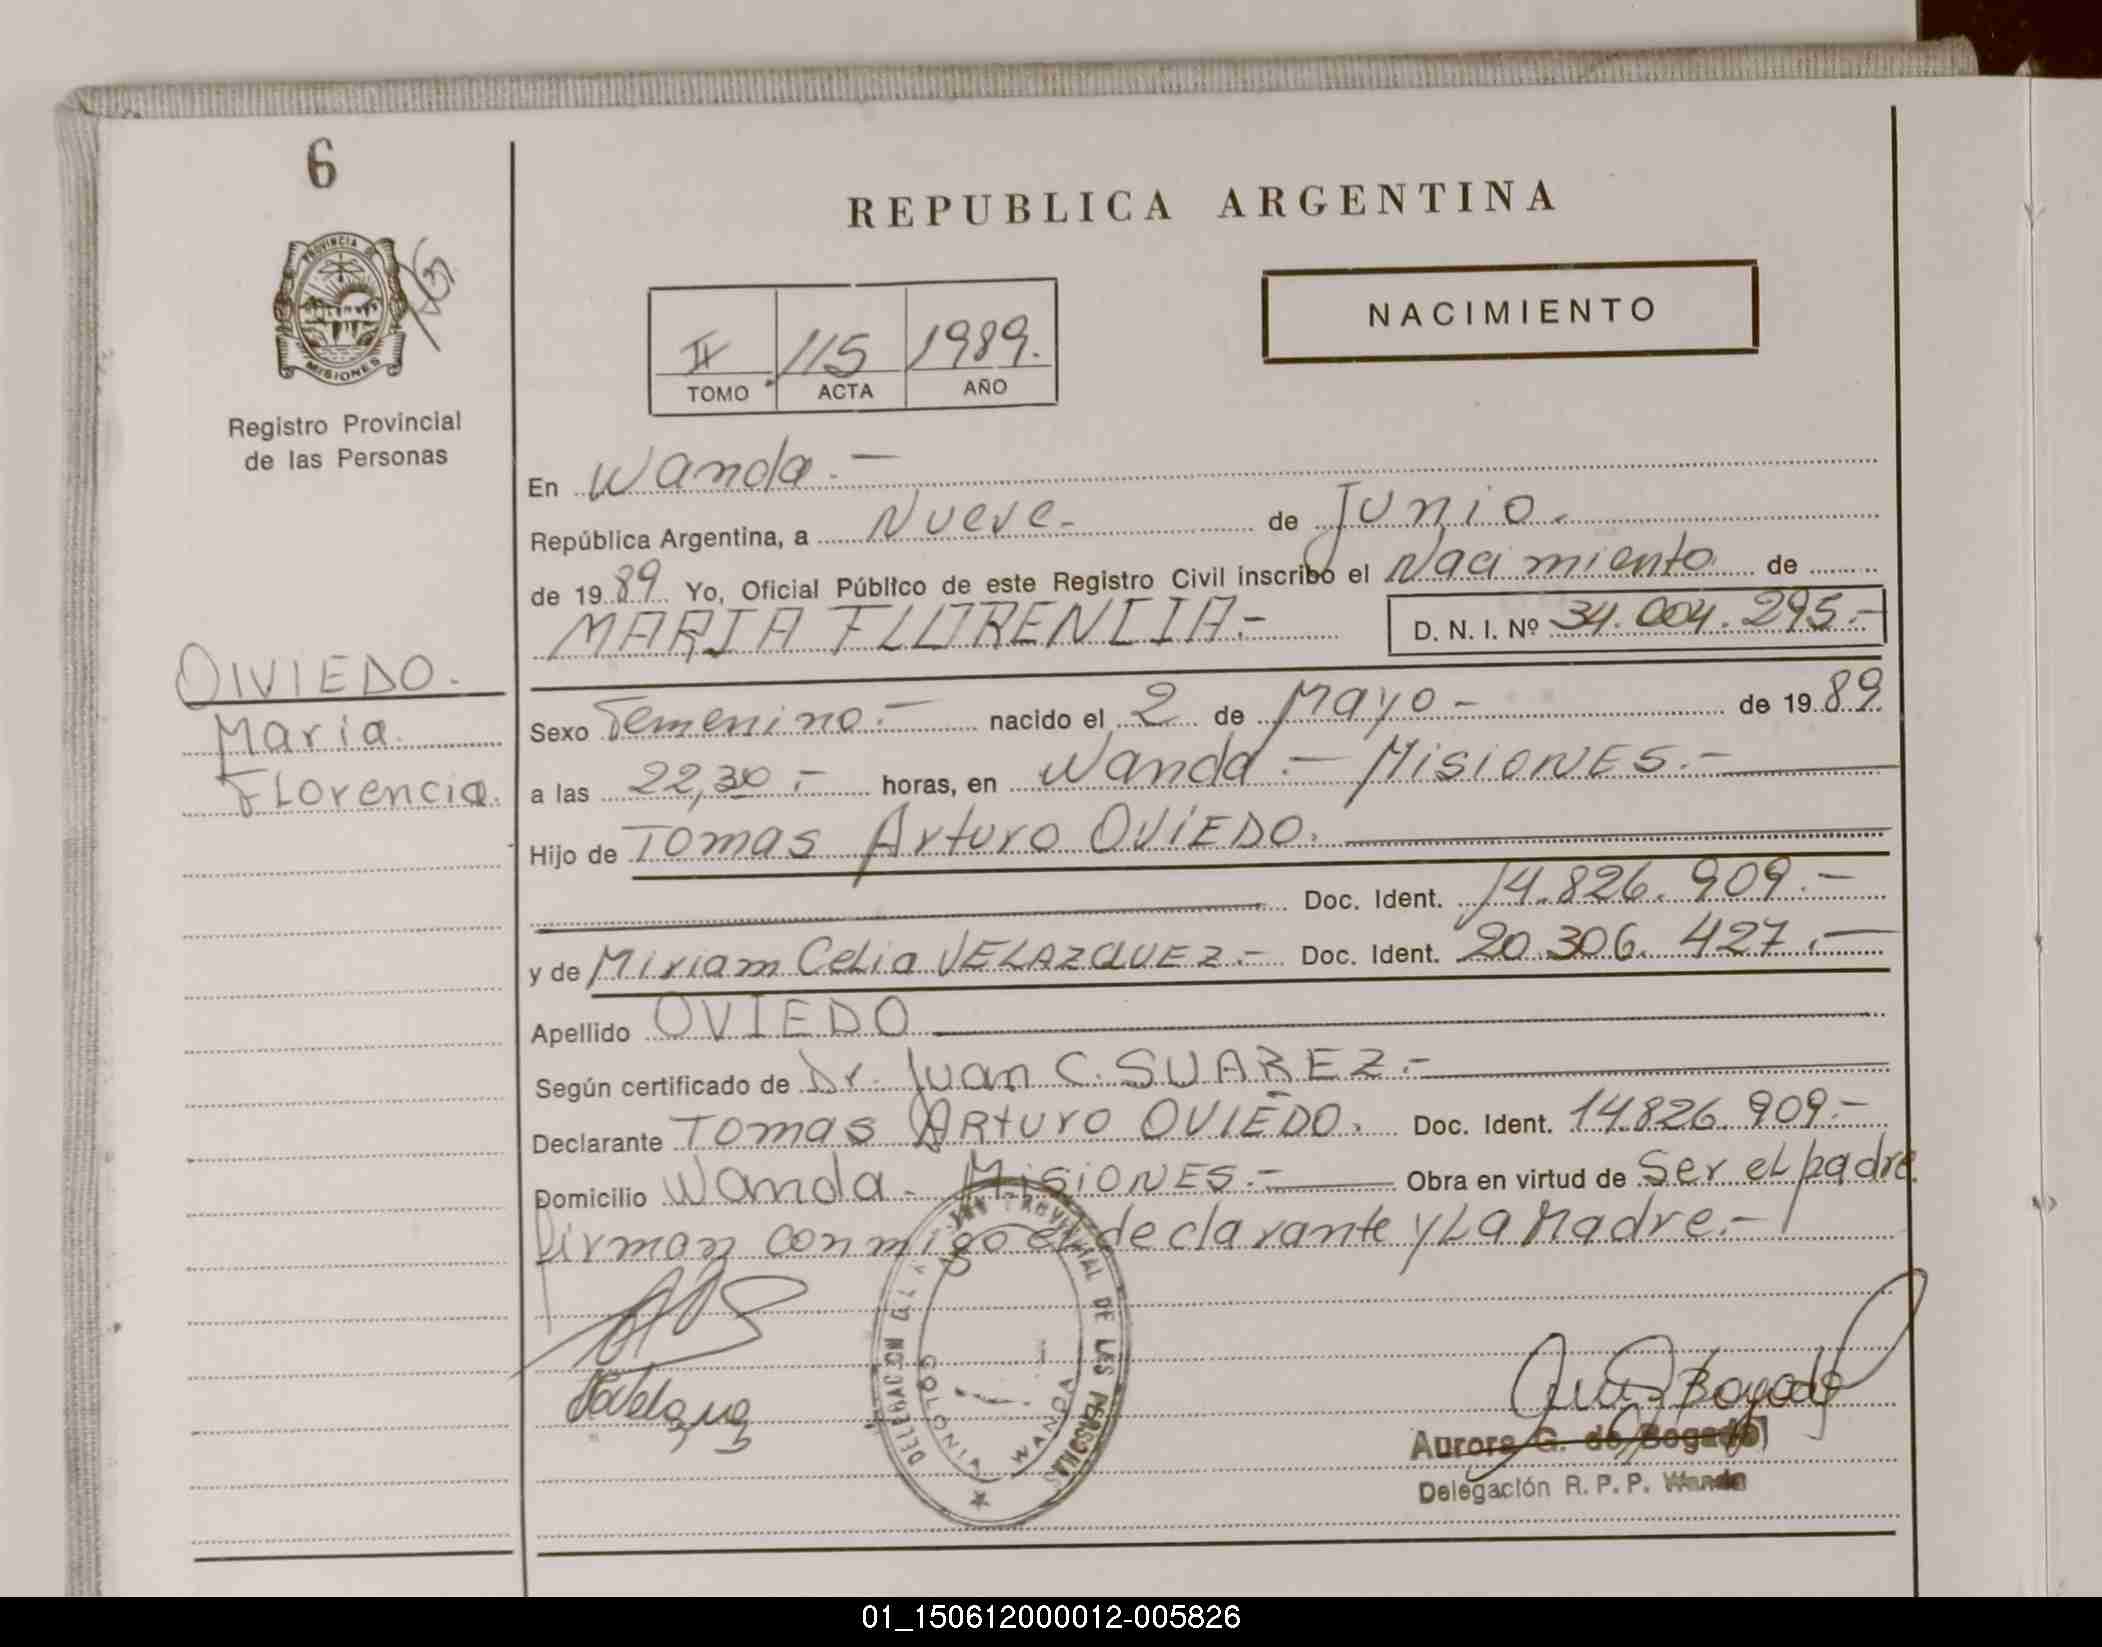 6
REPUBLICA ARGENTINA
PROVINCIA DE
MISIONES
NACIMIENTO
II 115 1989.
TOMO ACTA AÑO
Registro Provincial
de las Personas
En Wanda.-
República Argentina, a Nueve.- de Junio.
de 1989 Yo, Oficial Público de este Registro Civil inscribo el Nacimiento de
MARIA FLORENCIA.- D. N. I. Nº 34.004.295.-
OIVIEDO.
Maria
Florencia.
Sexo Femenino.- nacido el 2 de Mayo- de 1989
a las 22,30.- horas, en Wanda.- MISIONES.-
Hijo de Tomas Arturo OVIEDO.
Doc. Ident. 14.826.909.-
y de Miriam Celia VELAZQUEZ.- Doc. Ident. 20.306.427.-
Apellido OVIEDO
Según certificado de Dr. Juan C. SUAREZ.-
Declarante Tomas Arturo OVIEDO. Doc. Ident. 14.826.909.-
Domicilio Wanda. MISIONES.- Obra en virtud de Ser el padre.
firman conmigo el declarante y La Madre.-
DELEGACION DEL REGISTRO PROVINCIAL DE LAS PERSONAS
COLONIA WANDA
Aurora G. de Bogado
Delegación R. P. P. Wanda
01_150612000012-005826